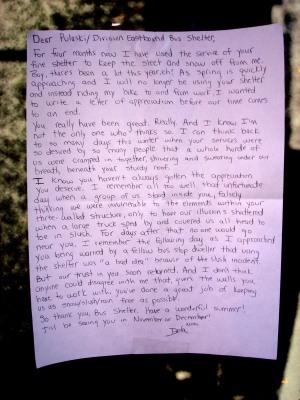 Dear Pulaski/Division Eastbound Bus Shelter,
For four months now I have used the service of your
fine shelter to keep the sleet and snow off from me.
Boy, there's been a lot this year, eh! As Spring is quickly
approaching and I will no longer be using your shelter
and instead riding my bike to and from work, I wanted
to write a letter of appreciation before our time comes
to an end.
You really have been great. Really. And I know I'm
not the only one who thinks so. I can think back
to so many days this winter when your services were
so desired by so many people that a whole horde of
us were cramped in together, shivering and swearing under our
breath, beneath your sturdy roof.
I know you haven't always gotten the appreciation
you deserve. I remember all too well that unfortunate
day when a group of us stood inside you, falsely
thinking we were invulnerable to the elements within your
three-walled structure, only to have our illusions shattered
when a large truck sped by and covered us all head to
toe in slush. For days after that no one would go
near you. I remember the following day as I approached
you being warned by a fellow bus stop dweller that using
the shelter was "a bad idea" because of the slush incident.
But our trust in you soon returned. And I don't think
anyone could disagree with me that, given the walls you
have to work with, you've done a great job of keeping
us as snow/slush/rain free as possible.
So thank you, Bus Shelter. Have a wonderful summer!
I'll be seeing you in November or December!